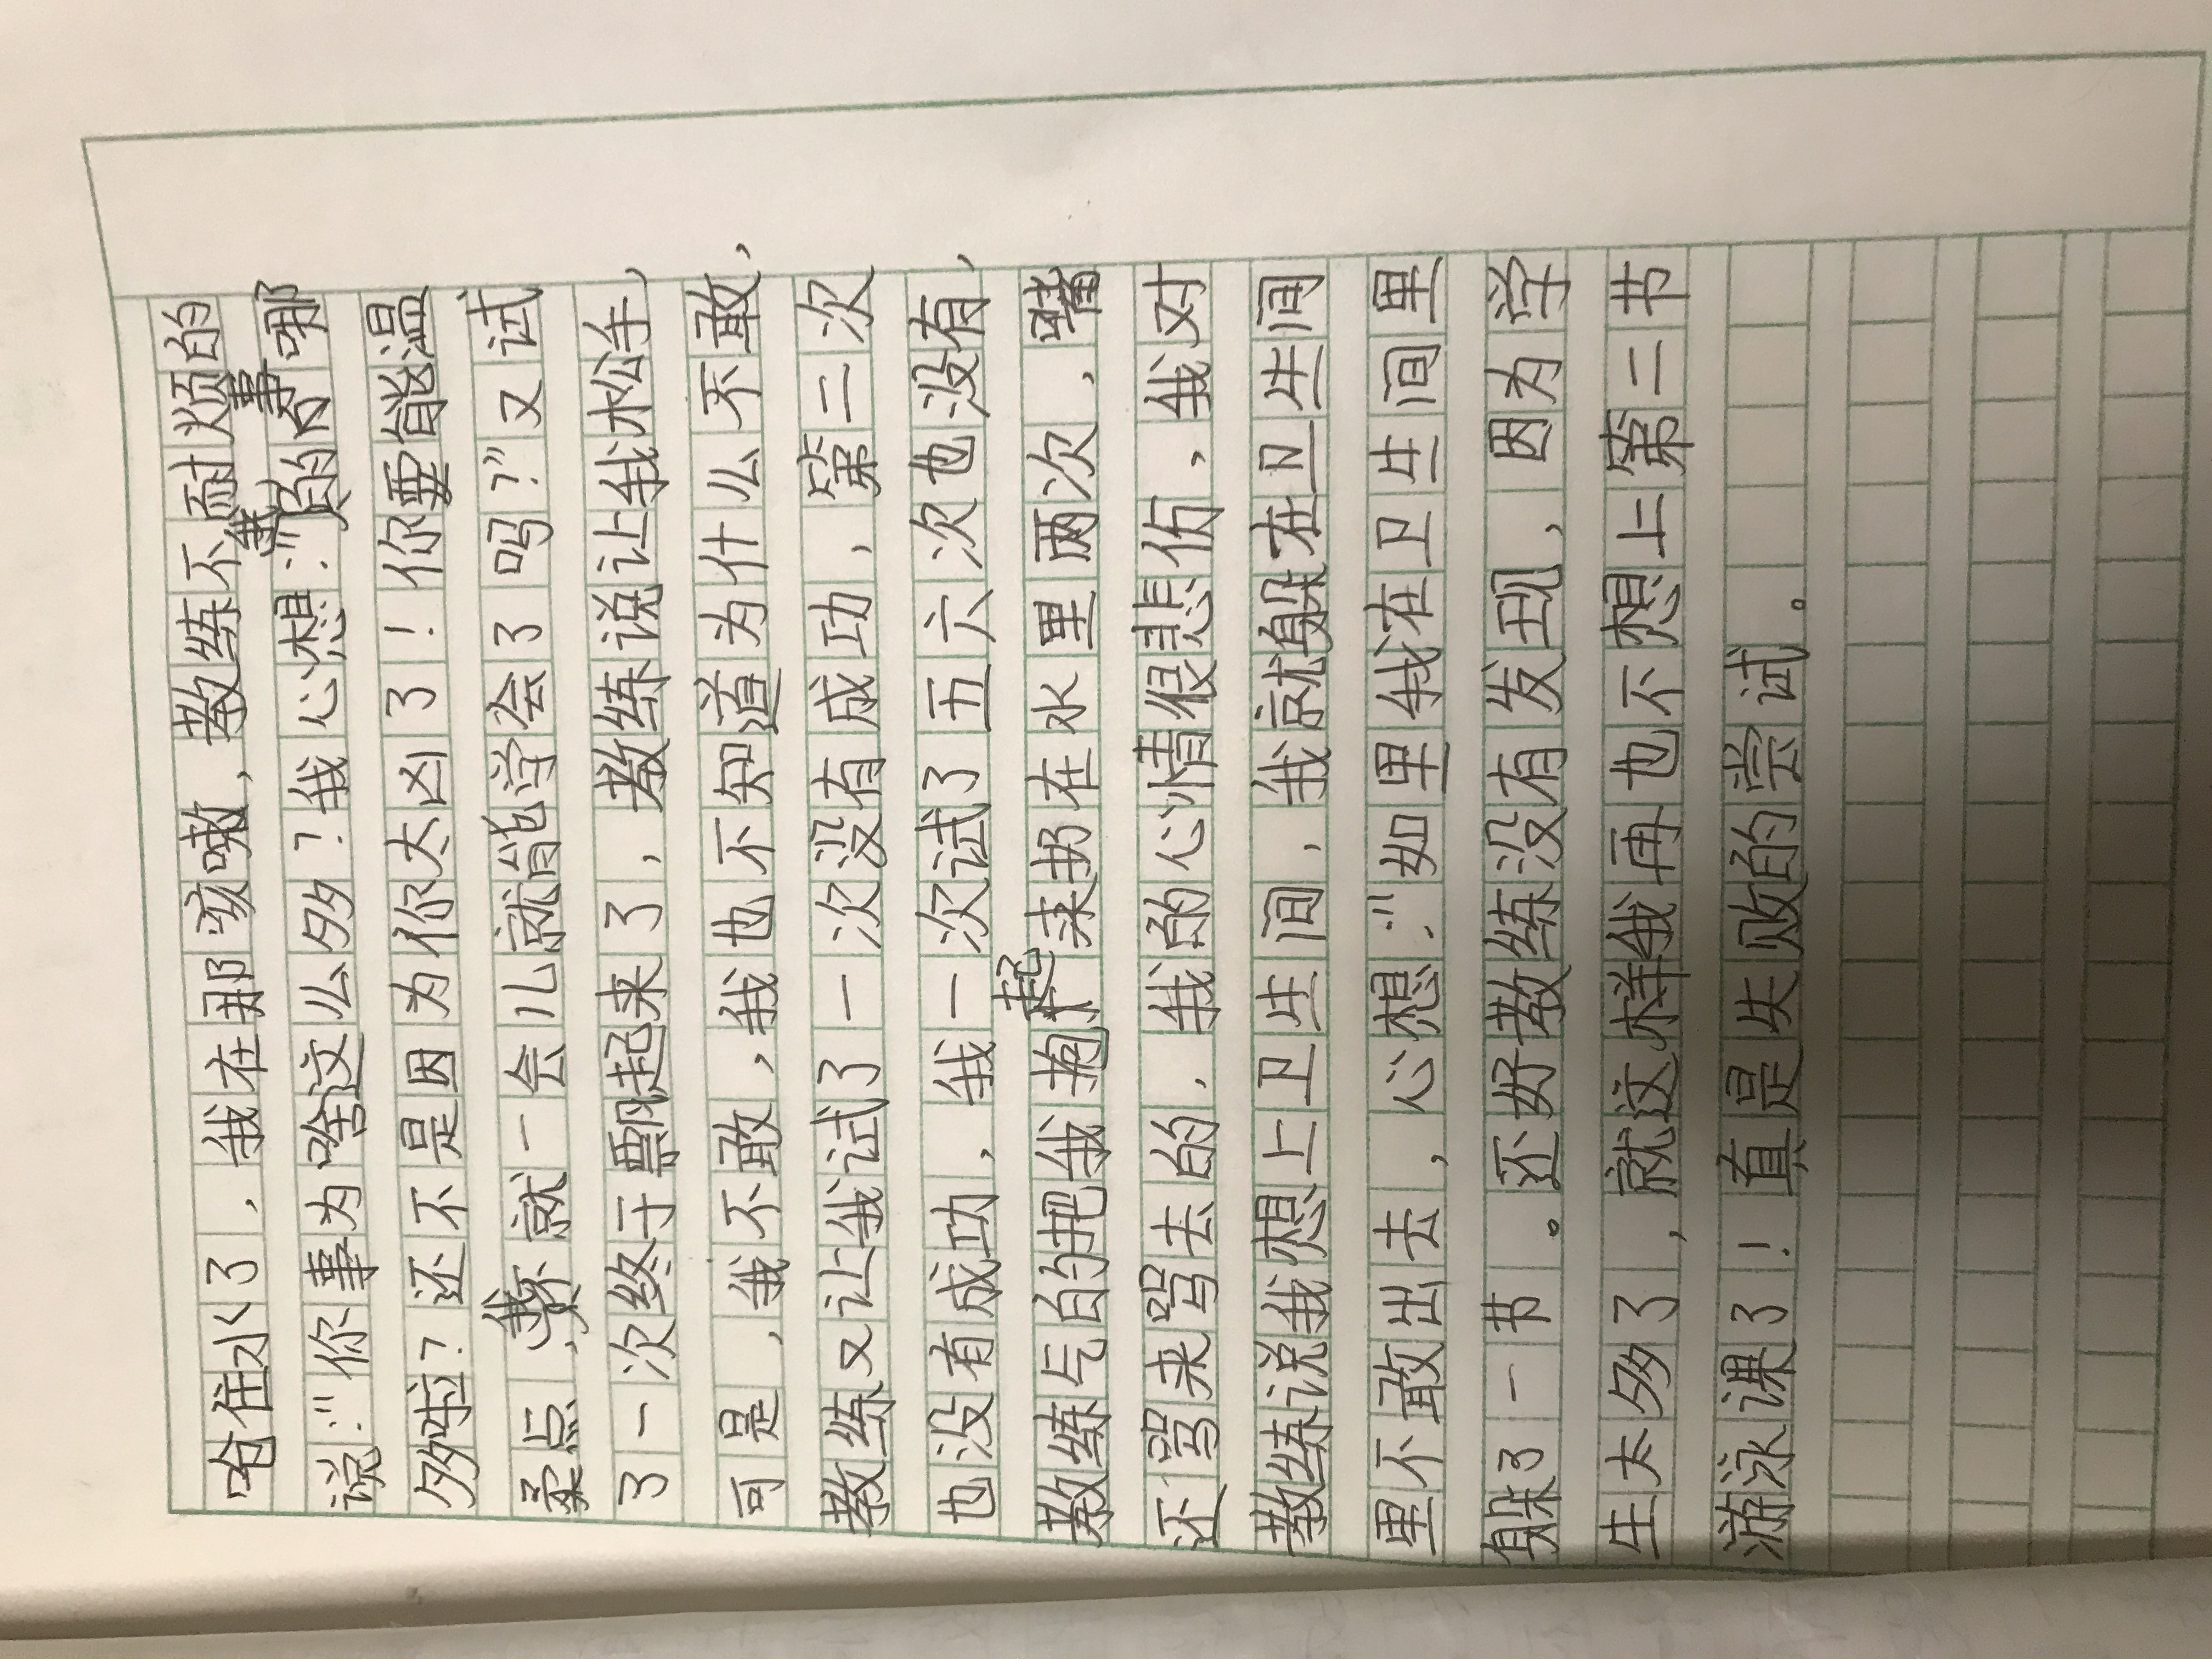 呛住水了，我在那咳嗽，教练不耐烦的
说：“你事为啥这么多？我心想：“我的事哪
多啦？还不是因为你太凶了！你要能温
柔点，我不就一会儿就能学会了吗？”又试
了一次终于飘起来了，教练说让我松手，
可是，我不敢，我也不知道为什么不敢，
教练又让我试了一次没有成功，第二次
也没有成功，我一次试了五六次也没有，
教练气的把我抱起来扔在水里两次，嘴
还骂来骂去的，我的心情很悲伤，我对
教练说我想上卫生间，我就躲在卫生间
里不敢出去，心想：“如里我在卫生间里
躲了一节。还好教练没有发现，因为学
生太多了，就这样我再也不想上第二节
游泳课了！真是失败的尝试。